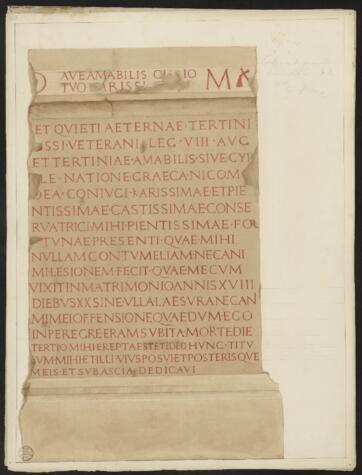 D AVEAMABILIS M
TVO CARISSI
ET QVIETI AETERNAE·TERTINI
SSI·VETERANI LEG·VIII·AVG
ET TERTINIAE·AMABILIS·SIVE·CYI
LE·NATIONE·GRAECA·NICOM
DEA·CONIVGI·KARISSIMAE ET PIE
NTISSIMAE·CASTISSIMAE·CONSE
RVATRICI·MIHI·PIENTISSIMAE·FOR
TVNAE·PRESENTI·QVAE·MIHI
NVLLAM CONTVMELIAM·NEC ANI
MI·LESIONEM·FECIT·QVAE·MECVM
VIXIT IN MATRIMONIO ANNIS XVIII
DIEBVS XX SINE VLLA LAESVRA NEC AN
MI MEI OFFENSIONE QVAE DVM·EGO
IN PEREGRE ERAM SVBITA MORTE DIE
TERTIO MIHI EREPTA EST ET IDEO HVNC·TITV
VM MIHI ET ILLI·VIVS POSVI ET POSTERISQVE
MEIS·ET SVB ASCIA DEDICAVI